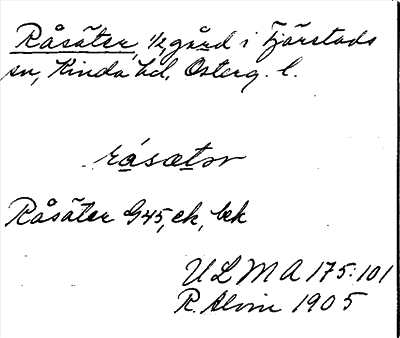 Råsäter, 1/2 gård i Tjärstads
sn, Kinda hd, Österg. l.
råsætər
Råsäter G45, ek, bk
ULMA 175:101
R. Alvin 1905